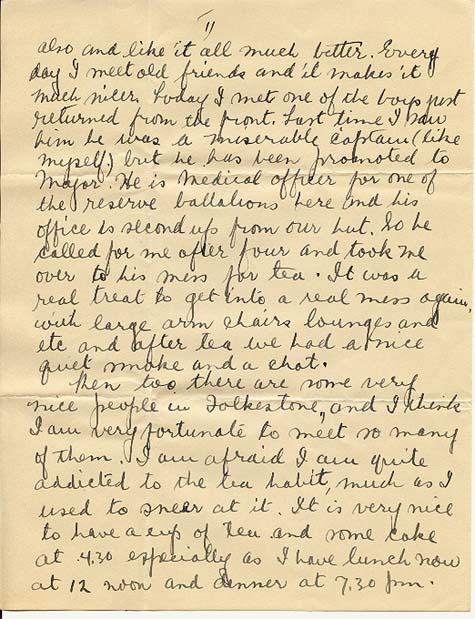 11
also and like it all much better. Every
day I meet old friends and it makes it
much nicer. Today I met one of the boys just
returned from the front. Last time I saw
him he was a miserable captain (like
myself) but he has been promoted to
Major. He is Medical officer for one of
the reserve battalions here and his
office is second up from our hut. So he
called for me after four and took me
over to his mess for tea. It was a
real treat to get into a real mess again,
with large arm chairs lounges and
etc and after tea we had a nice
quiet smoke and a chat.
Then too there are some very
nice people in Folkestone, and I think
I am very fortunate to meet so many
of them. I am afraid I am quite
addicted to the tea habit, much as I
used to sneer at it. It is very nice
to have a cup of tea and some cake
at 4.30 especially as I have lunch now
at 12 noon and dinner at 7.30 pm.